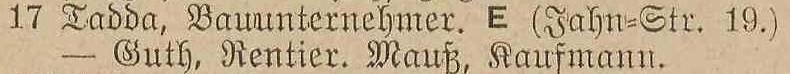 17 Tadda, Bauunternehmer. E (Jahn-Str. 19.)
— Guth, Rentier. Mauß, Kaufmann.